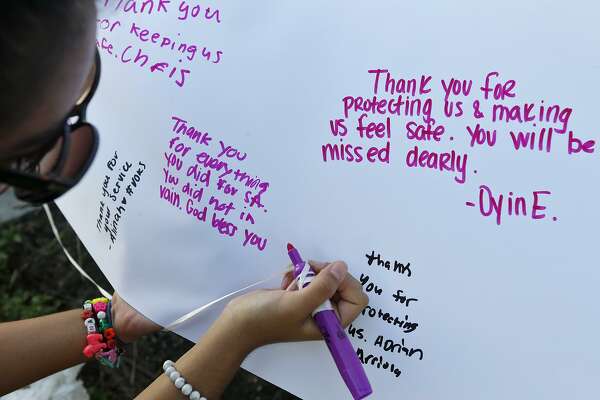 Thank you
for keeping us
safe. Chris
Thank you for
protecting us & making
us feel safe. You will be
missed dearly.
-Oyin E.
Thank you
for everything
you did for SA.
You did not in
vain. God bless you
Thank you for
your service
thank
you for
protecting
us. Adrian
Arriola